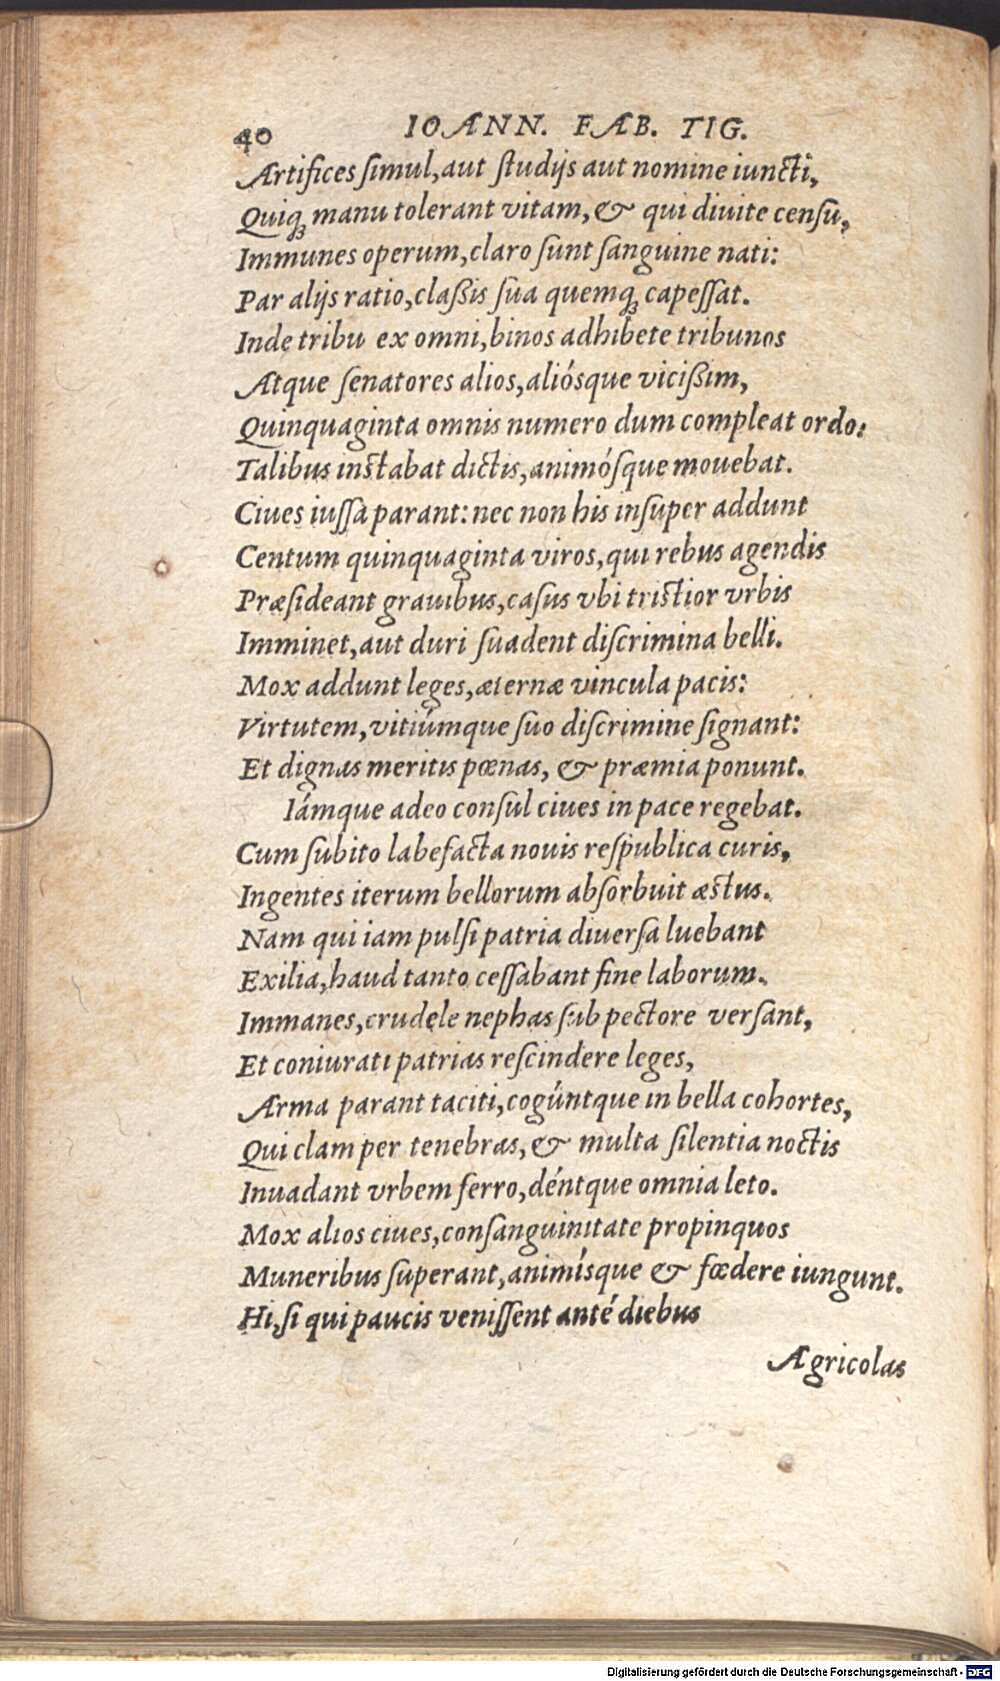 40 IOANN. FAB. TIG.
Artifices ſimul, aut ſtudijs aut nomine iuncti,
Quiqꝫ manu tolerant vitam, & qui diuite cenſu,
Immunes operum, claro ſunt ſanguine nati:
Par alijs ratio, claßis ſua quemqꝫ capeſſat.
Inde tribu ex omni, binos adhibete tribunos
Atque ſenatores alios, aliósque vicißim,
Quinquaginta omnis numero dum compleat ordo:
Talibus inſtabat dictis, animóſque mouebat.
Ciues iuſſa parant: nec non his inſuper addunt
Centum quinquaginta viros, qui rebus agendis
Præſideant grauibus, caſus vbi triſtior vrbis
Imminet, aut duri ſuadent diſcrimina belli.
Mox addunt leges, æternæ vincula pacis:
Virtutem, vitiúmque ſuo diſcrimine ſignant:
Et dignas meritis pœnas, & præmia ponunt.
Iámque adeo conſul ciues in pace regebat.
Cum ſubito labefacta nouis reſpublica curis,
Ingentes iterum bellorum abſorbuit æſtus.
Nam qui iam pulſi patria diuerſa luebant
Exilia, haud tanto ceſſabant fine laborum.
Immanes, crudele nephas ſub pectore verſant,
Et coniurati patrias reſcindere leges,
Arma parant taciti, cogúntque in bella cohortes,
Qui clam per tenebras, & multa ſilentia noctis
Inuadant vrbem ferro, déntque omnia leto.
Mox alios ciues, conſanguinitate propinquos
Muneribus ſuperant, animísque & fœdere iungunt.
Hi, ſi qui paucis veniſſent anté diebus
Agricolas
Digitalisierung gefördert durch die Deutsche Forschungsgemeinschaft - DFG